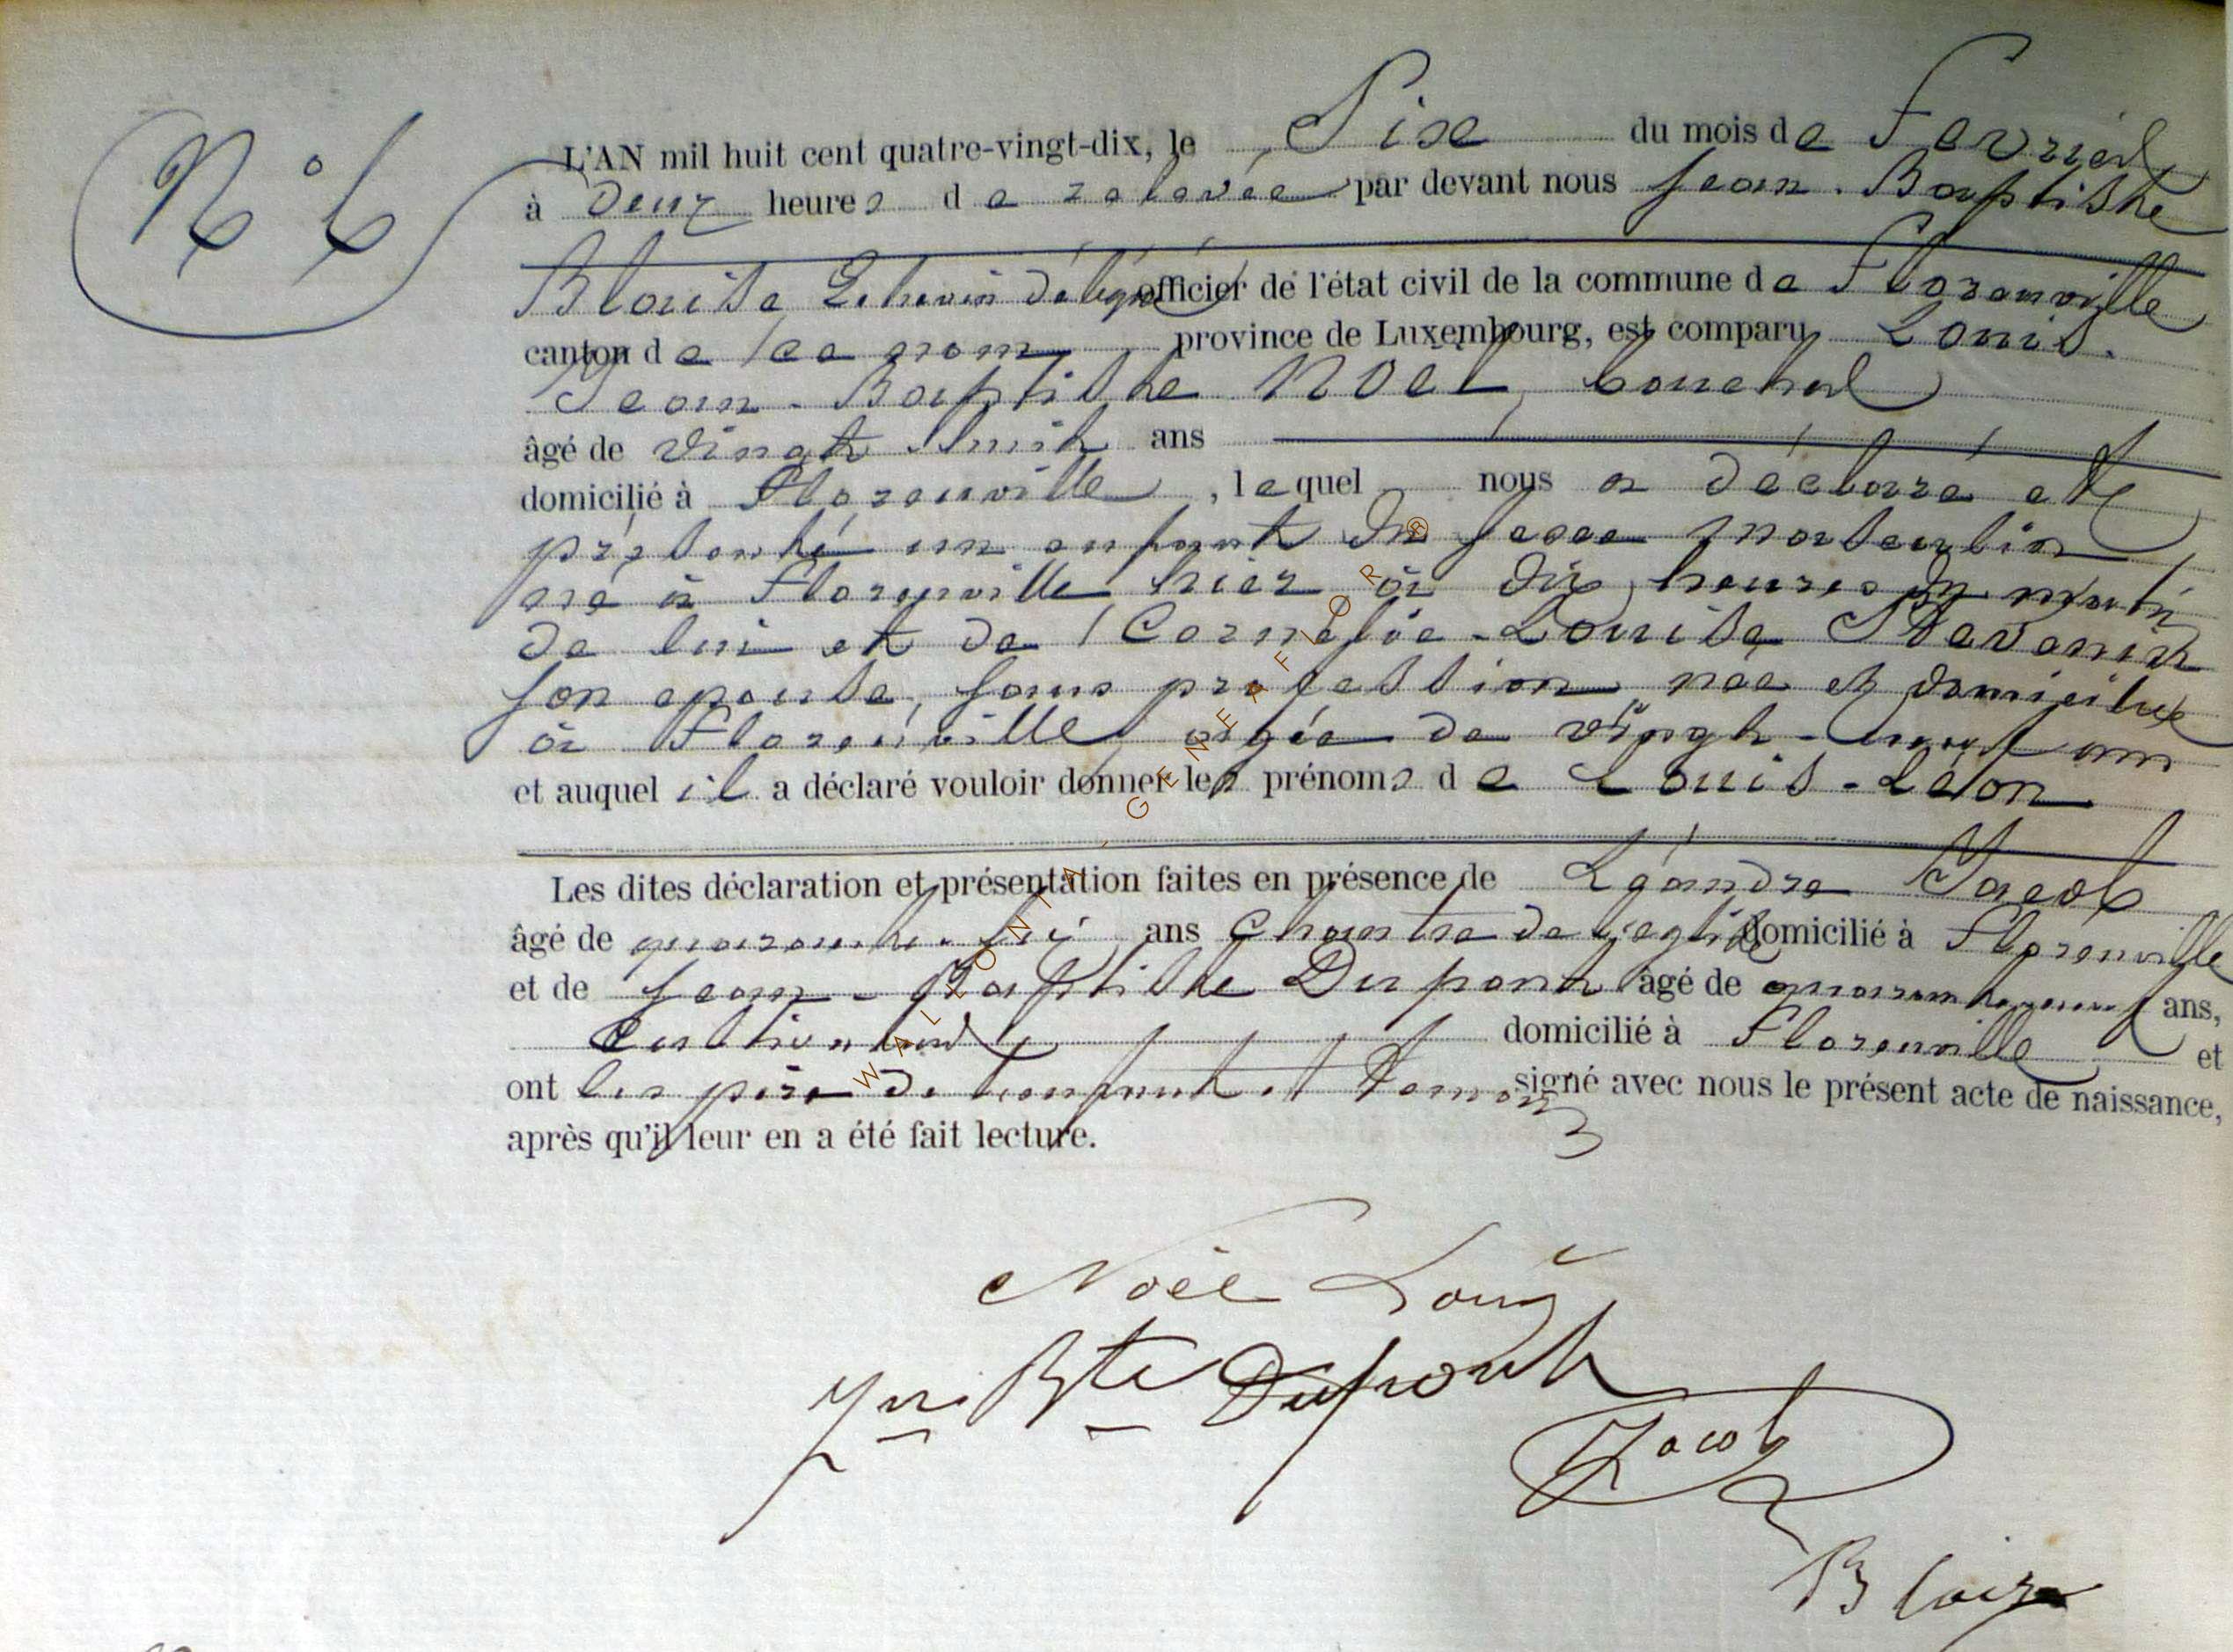 N° 6
L'AN mil huit cent quatre-vingt-dix, le Six du mois de Fevrier
à Deux heures de relevée par devant nous Jean-Baptiste
Blaise Echevin délégué officier de l'état civil de la commune de Florenville
canton de ce nom province de Luxembourg, est comparu Louis-
Jean-Baptiste NOEL, boucher
âgé de vingt huit ans
domicilié à Florenville, lequel nous a déclaré et
présenté un enfant du sexe masculin
né à Florenville hier à dix heures du matin
de lui et de Cornélie-Louise
son epouse, sans profession née et domiciliée
à Florenville agée de vingt-neuf ans
et auquel il a déclaré vouloir donner les prénoms de Louis-Léon
Les dites déclaration et présentation faites en présence de Léandre Jacob
âgé de quarante-six ans Chantre de l'eglise domicilié à Florenville
et de Jean-Baptiste Dupont âgé de quarante neuf ans,
Cultivateur domicilié à Florenville et
ont les père de l'enfant et temoins signé avec nous le présent acte de naissance,
après qu'il leur en a été fait lecture.
Noël Louis
Jn Bte Dupont
Jacob
Blaise
WALLONIA - GENEAFLOR ®